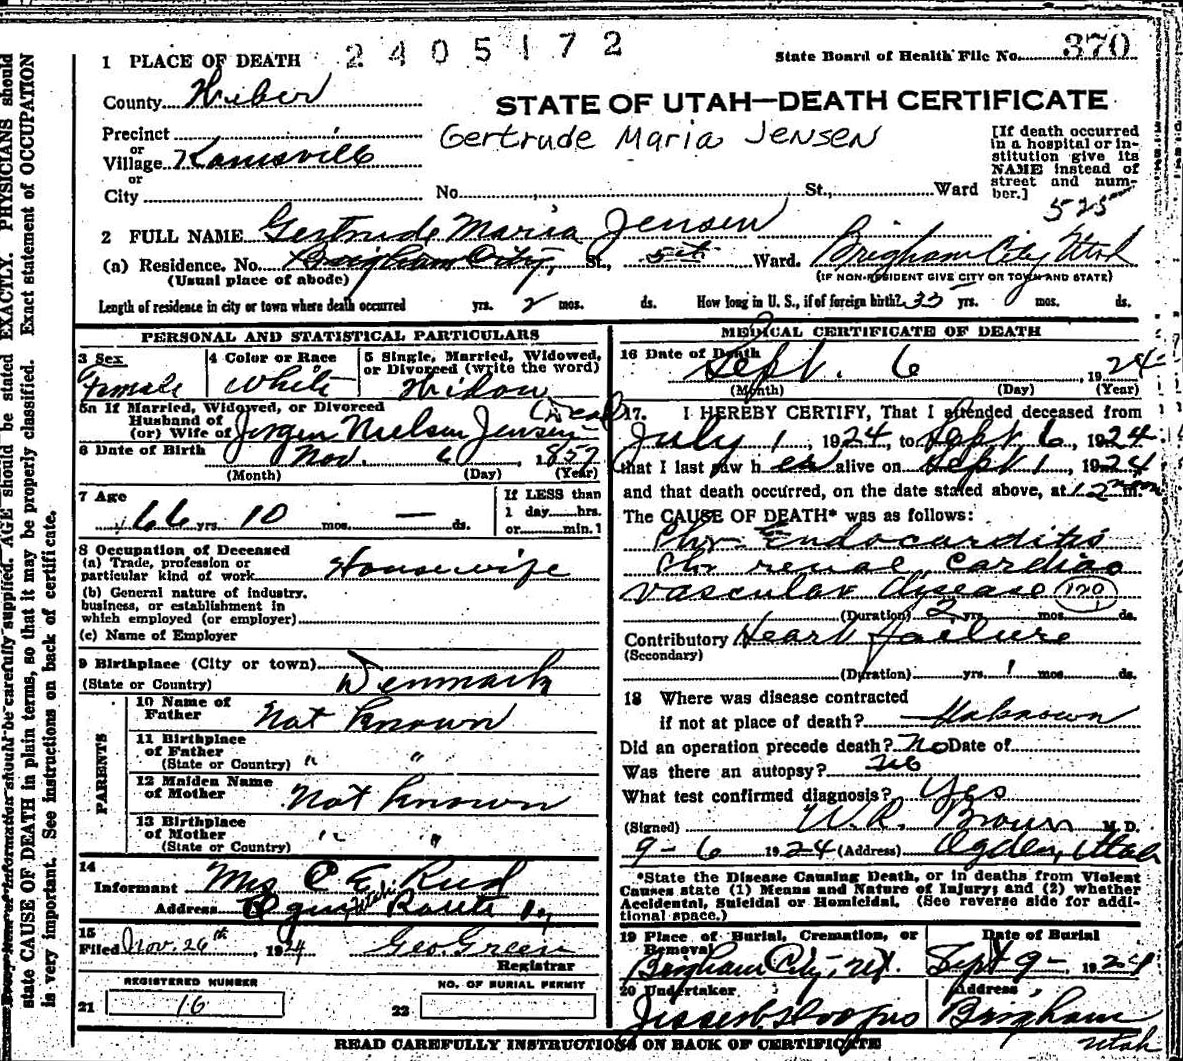 2405172
State Board of Health File No. 370
1 PLACE OF DEATH
County Weber
STATE OF UTAH—DEATH CERTIFICATE
Precinct
or
Village Kanesville
or
City
Gertrude Maria Jensen
No. St., Ward
[If death occurred
in a hospital or in-
stitution give its
NAME instead of
street and num-
ber.]
525
2 FULL NAME Gertrude Maria Jensen
(a) Residence. No. Brigham City, St., 5th Ward. Brigham City Utah
(Usual place of abode)
(IF NON-RESIDENT GIVE CITY OR TOWN AND STATE)
Length of residence in city or town where death occurred yrs. 2 mos. ds. How long in U. S., if of foreign birth? 35 yrs. 0 mos. ds.
PERSONAL AND STATISTICAL PARTICULARS
3 Sex
Female
4 Color or Race
White
5 Single, Married, Widowed,
or Divorced (write the word)
Widow
5a If Married, Widowed, or Divorced
Husband of
(or) Wife of Jorgen Nielsen Jensen (Dead)
6 Date of Birth
Nov. 6, 1857
(Month) (Day) (Year)
7 Age
66 yrs. 10 mos. — ds.
If LESS than
1 day hrs.
or min.
8 Occupation of Deceased
(a) Trade, profession or
particular kind of work Housewife
(b) General nature of industry,
business, or establishment in
which employed (or employer)
(c) Name of Employer
9 Birthplace (City or town)
(State or Country) Denmark
PARENTS
10 Name of
Father Not known
11 Birthplace
of Father
(State or Country) " "
12 Maiden Name
of Mother Not known
13 Birthplace
of Mother
(State or Country) " "
14
Informant Mrs C E. Reed
Address Ogden Utah Route 1
15
Filed Nov. 26th 1924 Geo. Green
Registrar
REGISTERED NUMBER
21 16
NO. OF BURIAL PERMIT
22
MEDICAL CERTIFICATE OF DEATH
16 Date of Death
Sept. 6, 1924
(Month) (Day) (Year)
17. I HEREBY CERTIFY, That I attended deceased from
July 1, 1924, to Sept 6, 1924
that I last saw her alive on Sept 1, 1924
and that death occurred, on the date stated above, at 12 noon m.
The CAUSE OF DEATH* was as follows:
Chr Endocarditis
Chr renal cardiac
vascular disease 120
(Duration) 2 yrs. mos. ds.
Contributory Heart failure
(Secondary)
(Duration) yrs. 1 mos. ds.
18 Where was disease contracted
if not at place of death? Unknown
Did an operation precede death? No Date of
Was there an autopsy? No
What test confirmed diagnosis? Yes
(Signed) W.R. Brown M. D.
9-6 1924 (Address) Ogden, Utah
*State the Disease Causing Death, or in deaths from Violent
Causes state (1) Means and Nature of Injury; and (2) whether
Accidental, Suicidal or Homicidal. (See reverse side for addi-
tional space.)
19 Place of Burial, Cremation, or
Removal
Brigham City, Ut.
Date of Burial
Sept 9-, 1924
20 Undertaker
Address
Brigham
Utah
READ CAREFULLY INSTRUCTIONS ON BACK OF CERTIFICATE
information should be carefully supplied. AGE should be stated EXACTLY. PHYSICIANS should
state CAUSE OF DEATH in plain terms, so that it may be properly classified. Exact statement of OCCUPATION
is very important. See instructions on back of certificate.